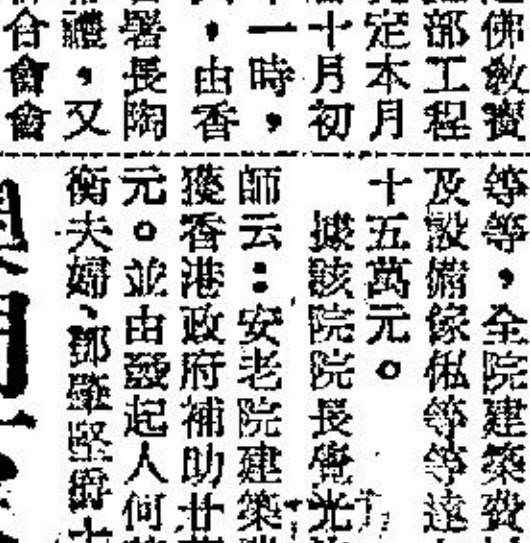 佛敎寶
部工程
定本月
十月初
一時，
，由香
署長陶
禮，又
合會會
等等，全院建築費
及設備傢俬等等達
十五萬元。
據該院院長覺光
師云：安老院建築
獲香港政府補助廿
元。並由發起人何
衡夫婦、鄧肇堅爵士